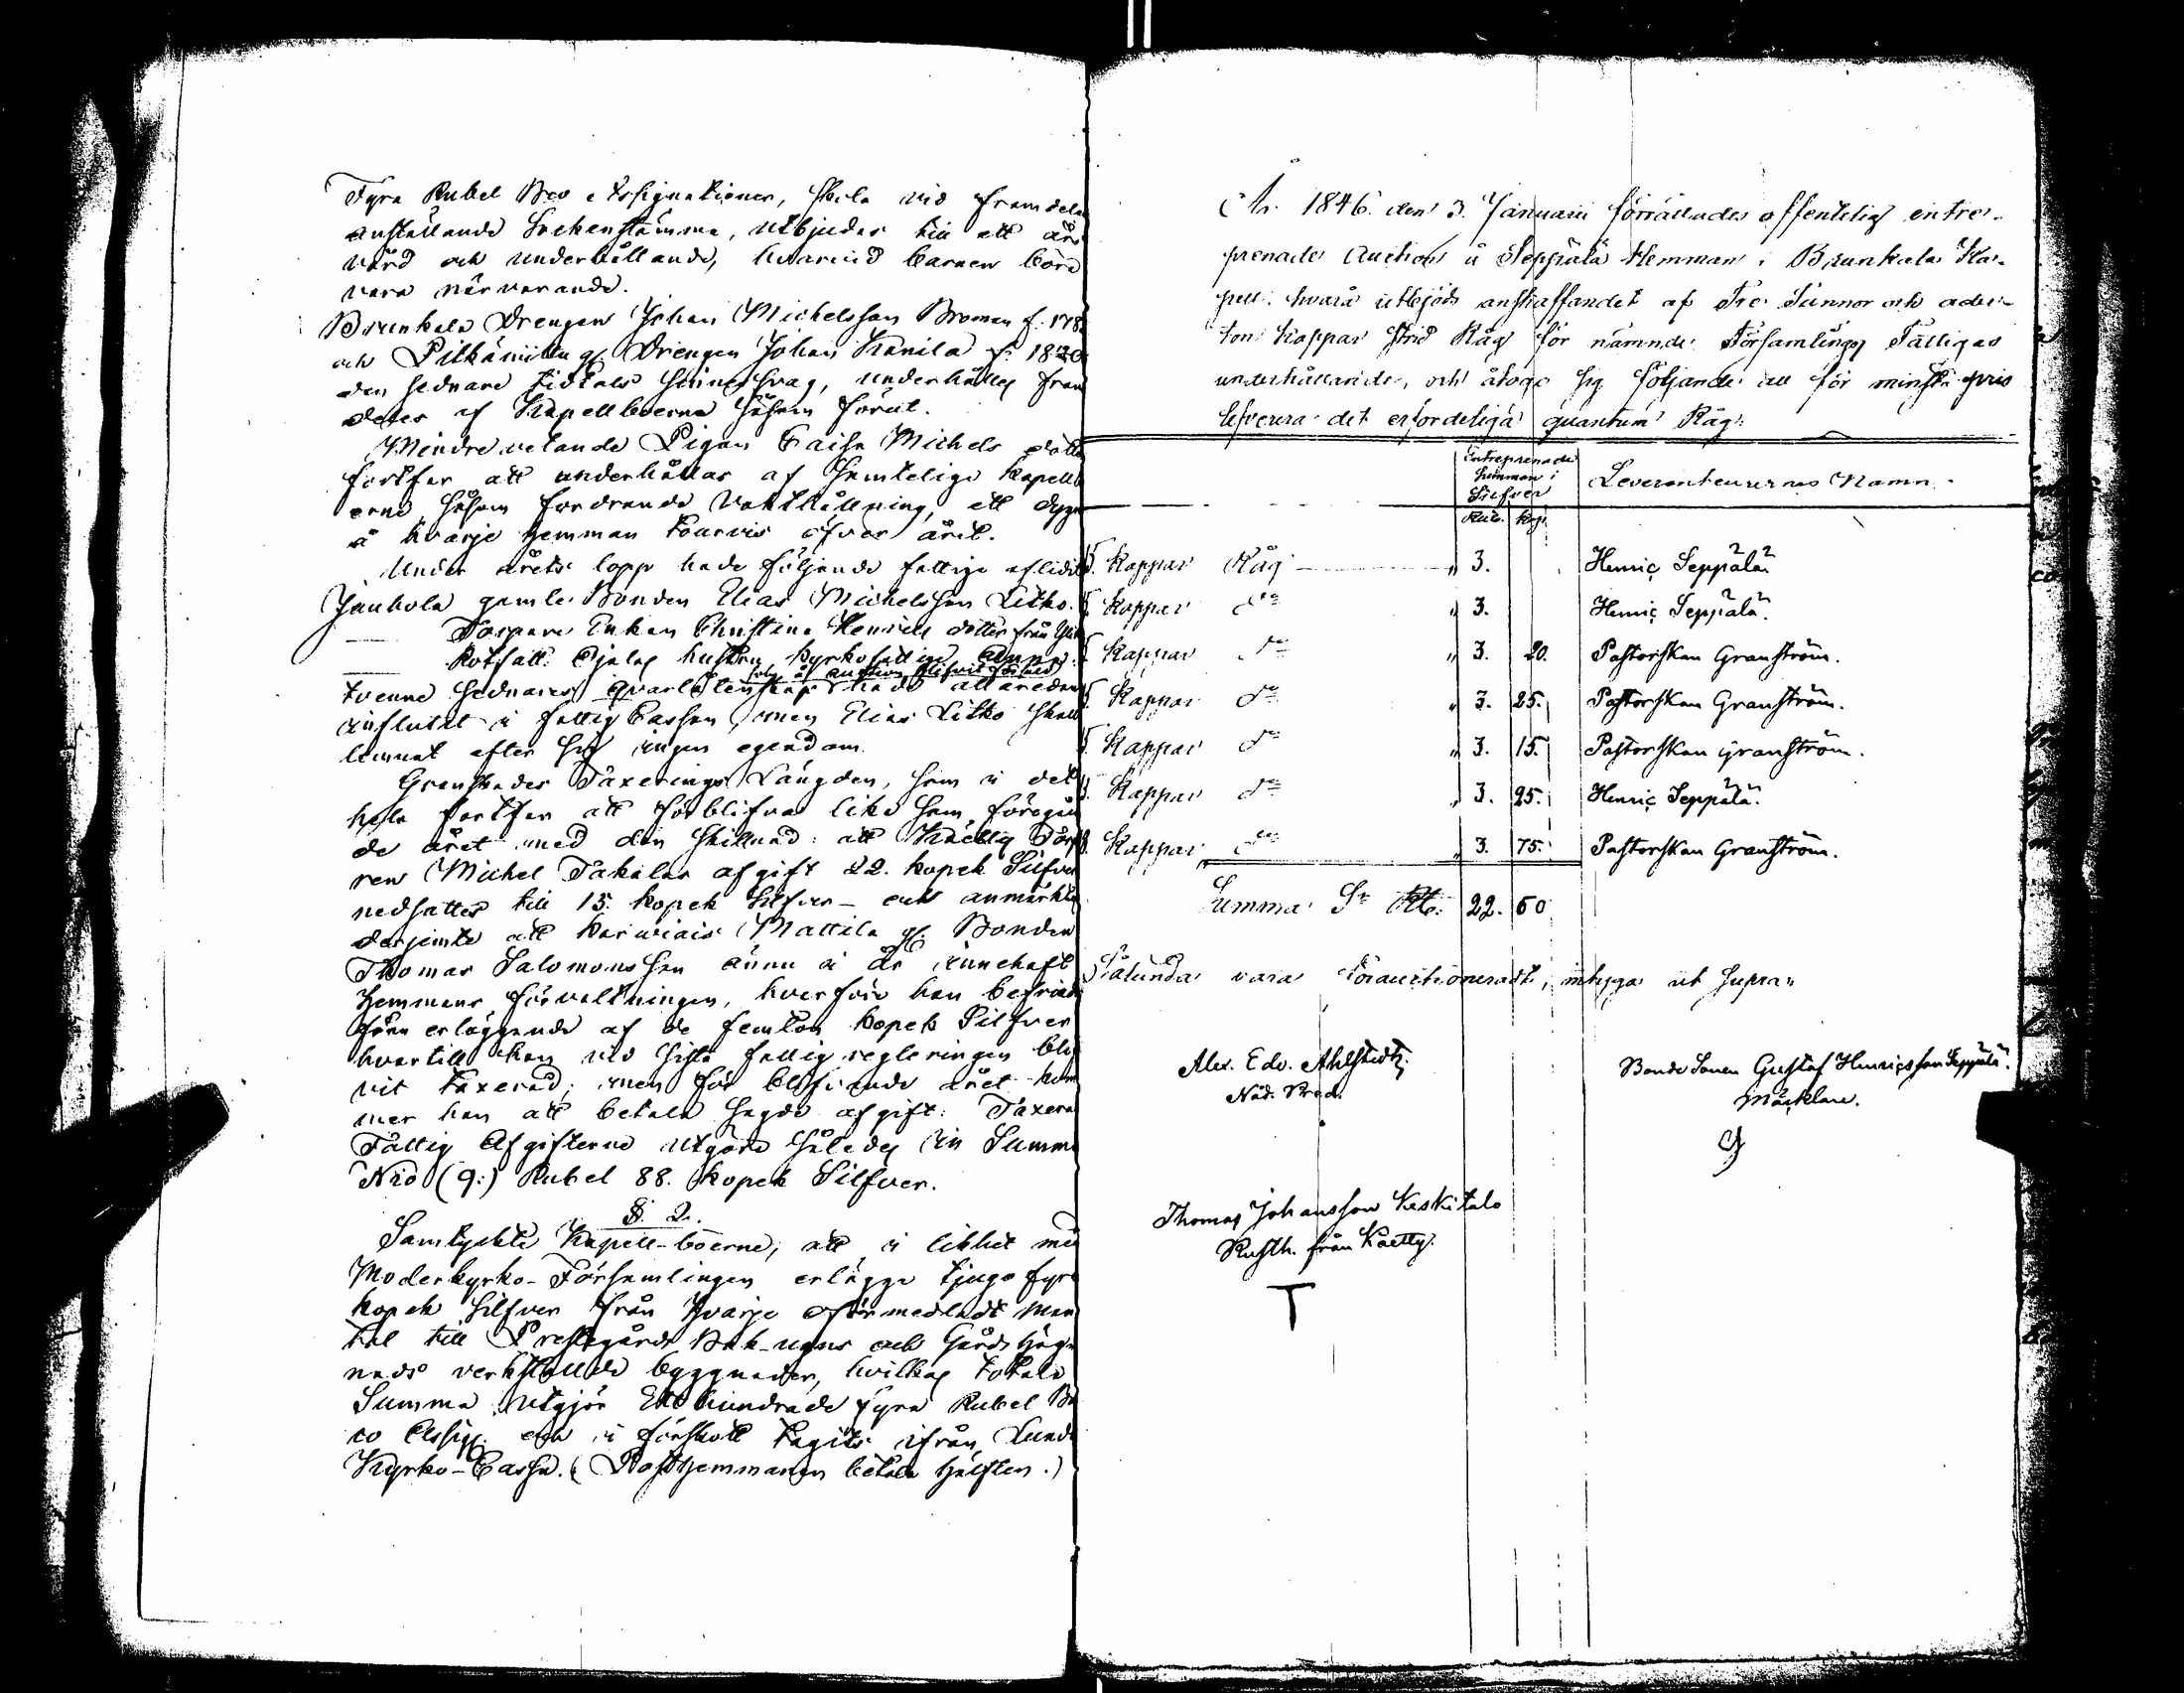 Fyra Rubel Bco Assignationer, skola vid framdeles
anställande Sockenstämma, utbjudas till ett års
vård och underhållande, hvarvid barnen böra
vara närvarande.
Brunkala Drengen Johan Michelsson Broman f. 178
och Pitkämäki gl. Drengen Johan Kanila f. 1820
den sednare tidtals sinnessvag, underhålles fram
deles af Kapellboerne såsom förut.
Mindre vetande Pigan Caisa Michels dotter
fortfar att underhållas af samtelige Kapellbo
erne, såsom fordrande vakthållning, ett dygn
å hvarje hemman tourvis öfver året.
Under årets lopp hade följande fattige aflidit
Jaukola gamle Bonden Elias Michelsson Litko.
Torpare Enkan Christina Henrics dotter från
Rotfatt. Hjelps hustrun Kyrkofattige Anna
som å auction blifvit försåld
tvenne sednares qvarlåtenskap hade allaredan
influtit i fattig Cassan, men Elias Litko skall
lemnat efter sig ingen egendom.
Granskades Taxerings Längden, som i det
hela fortfar att förblifva lika som föregåen
de året med den skillnad: att Kaetty Torpa
ren Michel Takalas afgift 22. kopek Silfver
nedsattes till 15 kopek Silfver – och anmärktes
derjemte att Karviais Mattila gl. Bonden
Thomas Salomonsson ännu i år innehaft
Hemmans förvaltningen, hvarföre han befriades
från erläggande af de femton kopek Silfver
hvartill han vid sista fattig regleringen blif
vit taxerad; men för blifvande året kom
mer han att betala sagde afgift. Taxera
Fattig Afgifterne utgöra således en Summa
Nio (9:) Rubel 88. kopek Silfver.
§. 2.
Samtyckte Kapell-boerne, att i likhet med
Moderkyrko-Församlingen erlägga tjugofyra
kopek Silfver från hvarje oförmedladt man
tal till Prestegårds Bak-ugns och Gårds häg
nads verkställde byggnader, hvilkas totala
Summa utgjör Ett hundrade fyra Rubel Ban
co Assign. och i förskott tagits ifrån Lundo
Kyrko-Cassa. (Rosthemmanen betala hälften.)
År 1846. den 3. Januarii förrättades offentelig entre-
prenade Auction å Seppälä Hemman i Brunkala Ka-
pell. hvarå utbjöds anskaffandet af Tre Tunnor och ader-
ton Kappar strid Råg för nämnde Församlings Fattigas
underhållande, och åtogo sig följande att för minsta pris
lefverera det erforderliga quantum Råg:
Entreprenade Summan i Silfver Leveranteurernas Namn.
Rub. kop.
5. Kappar Råg " 3. Henric Seppälä
5. Kappar dito " 3. Henric Seppälä.
5. Kappar do " 3. 20. Pastorskan Granström.
5. Kappar do " 3. 25. Pastorskan Granström.
5. Kappar do " 3. 15. Pastorskan Granström.
5. Kappar do " 3. 25. Henric Seppälä.
8. Kappar do " 3. 75. Pastorskan Granström.
Summa Sr Rb. 22. 60
Sålunda vara förauctioneradt, intyga ut supra
Alex. Edv. Ahlstedt, Bonde Sonen Gustaf Henricsson Seppälä.
Nåd. Pred. Mäcklare.
G
Thomas Johansson Keskitalo
Rusth. från Kaetty.
T